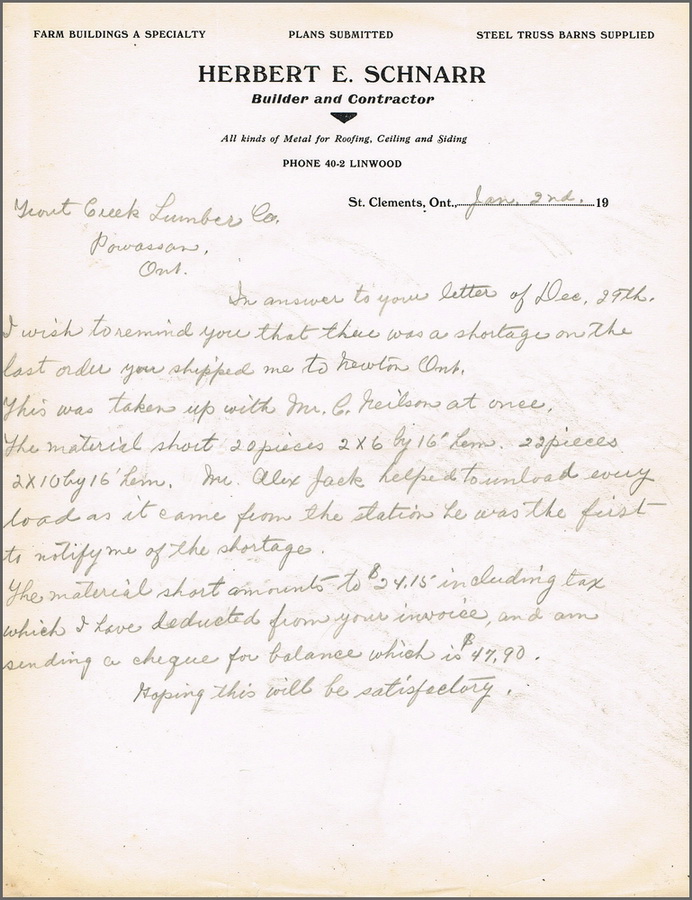 FARM BUILDINGS A SPECIALTY PLANS SUBMITTED STEEL TRUSS BARNS SUPPLIED
HERBERT E. SCHNARR
Builder and Contractor
All kinds of Metal for Roofing, Ceiling and Siding
PHONE 40-2 LINWOOD
St. Clements, Ont., Jan. 2nd. 19
Trout Creek Lumber Co.
Powassan,
Ont.
In answer to your letter of Dec, 29th.
I wish to remind you that there was a shortage on the
last order you shipped me to Newton Ont.
This was taken up with Mr. C. Neilson at once.
The material short 20 pieces 2X6 by 16' Hem. 22 pieces
2X10 by 16' Hem. Mr. Alex Jack helped to unload every
load as it came from the station he was the first
to notify me of the shortage.
The material short amounts to $24.15 including tax
which I have deducted from your invoice, and am
sending a cheque for balance which is $47.90.
Hoping this will be satisfactory.